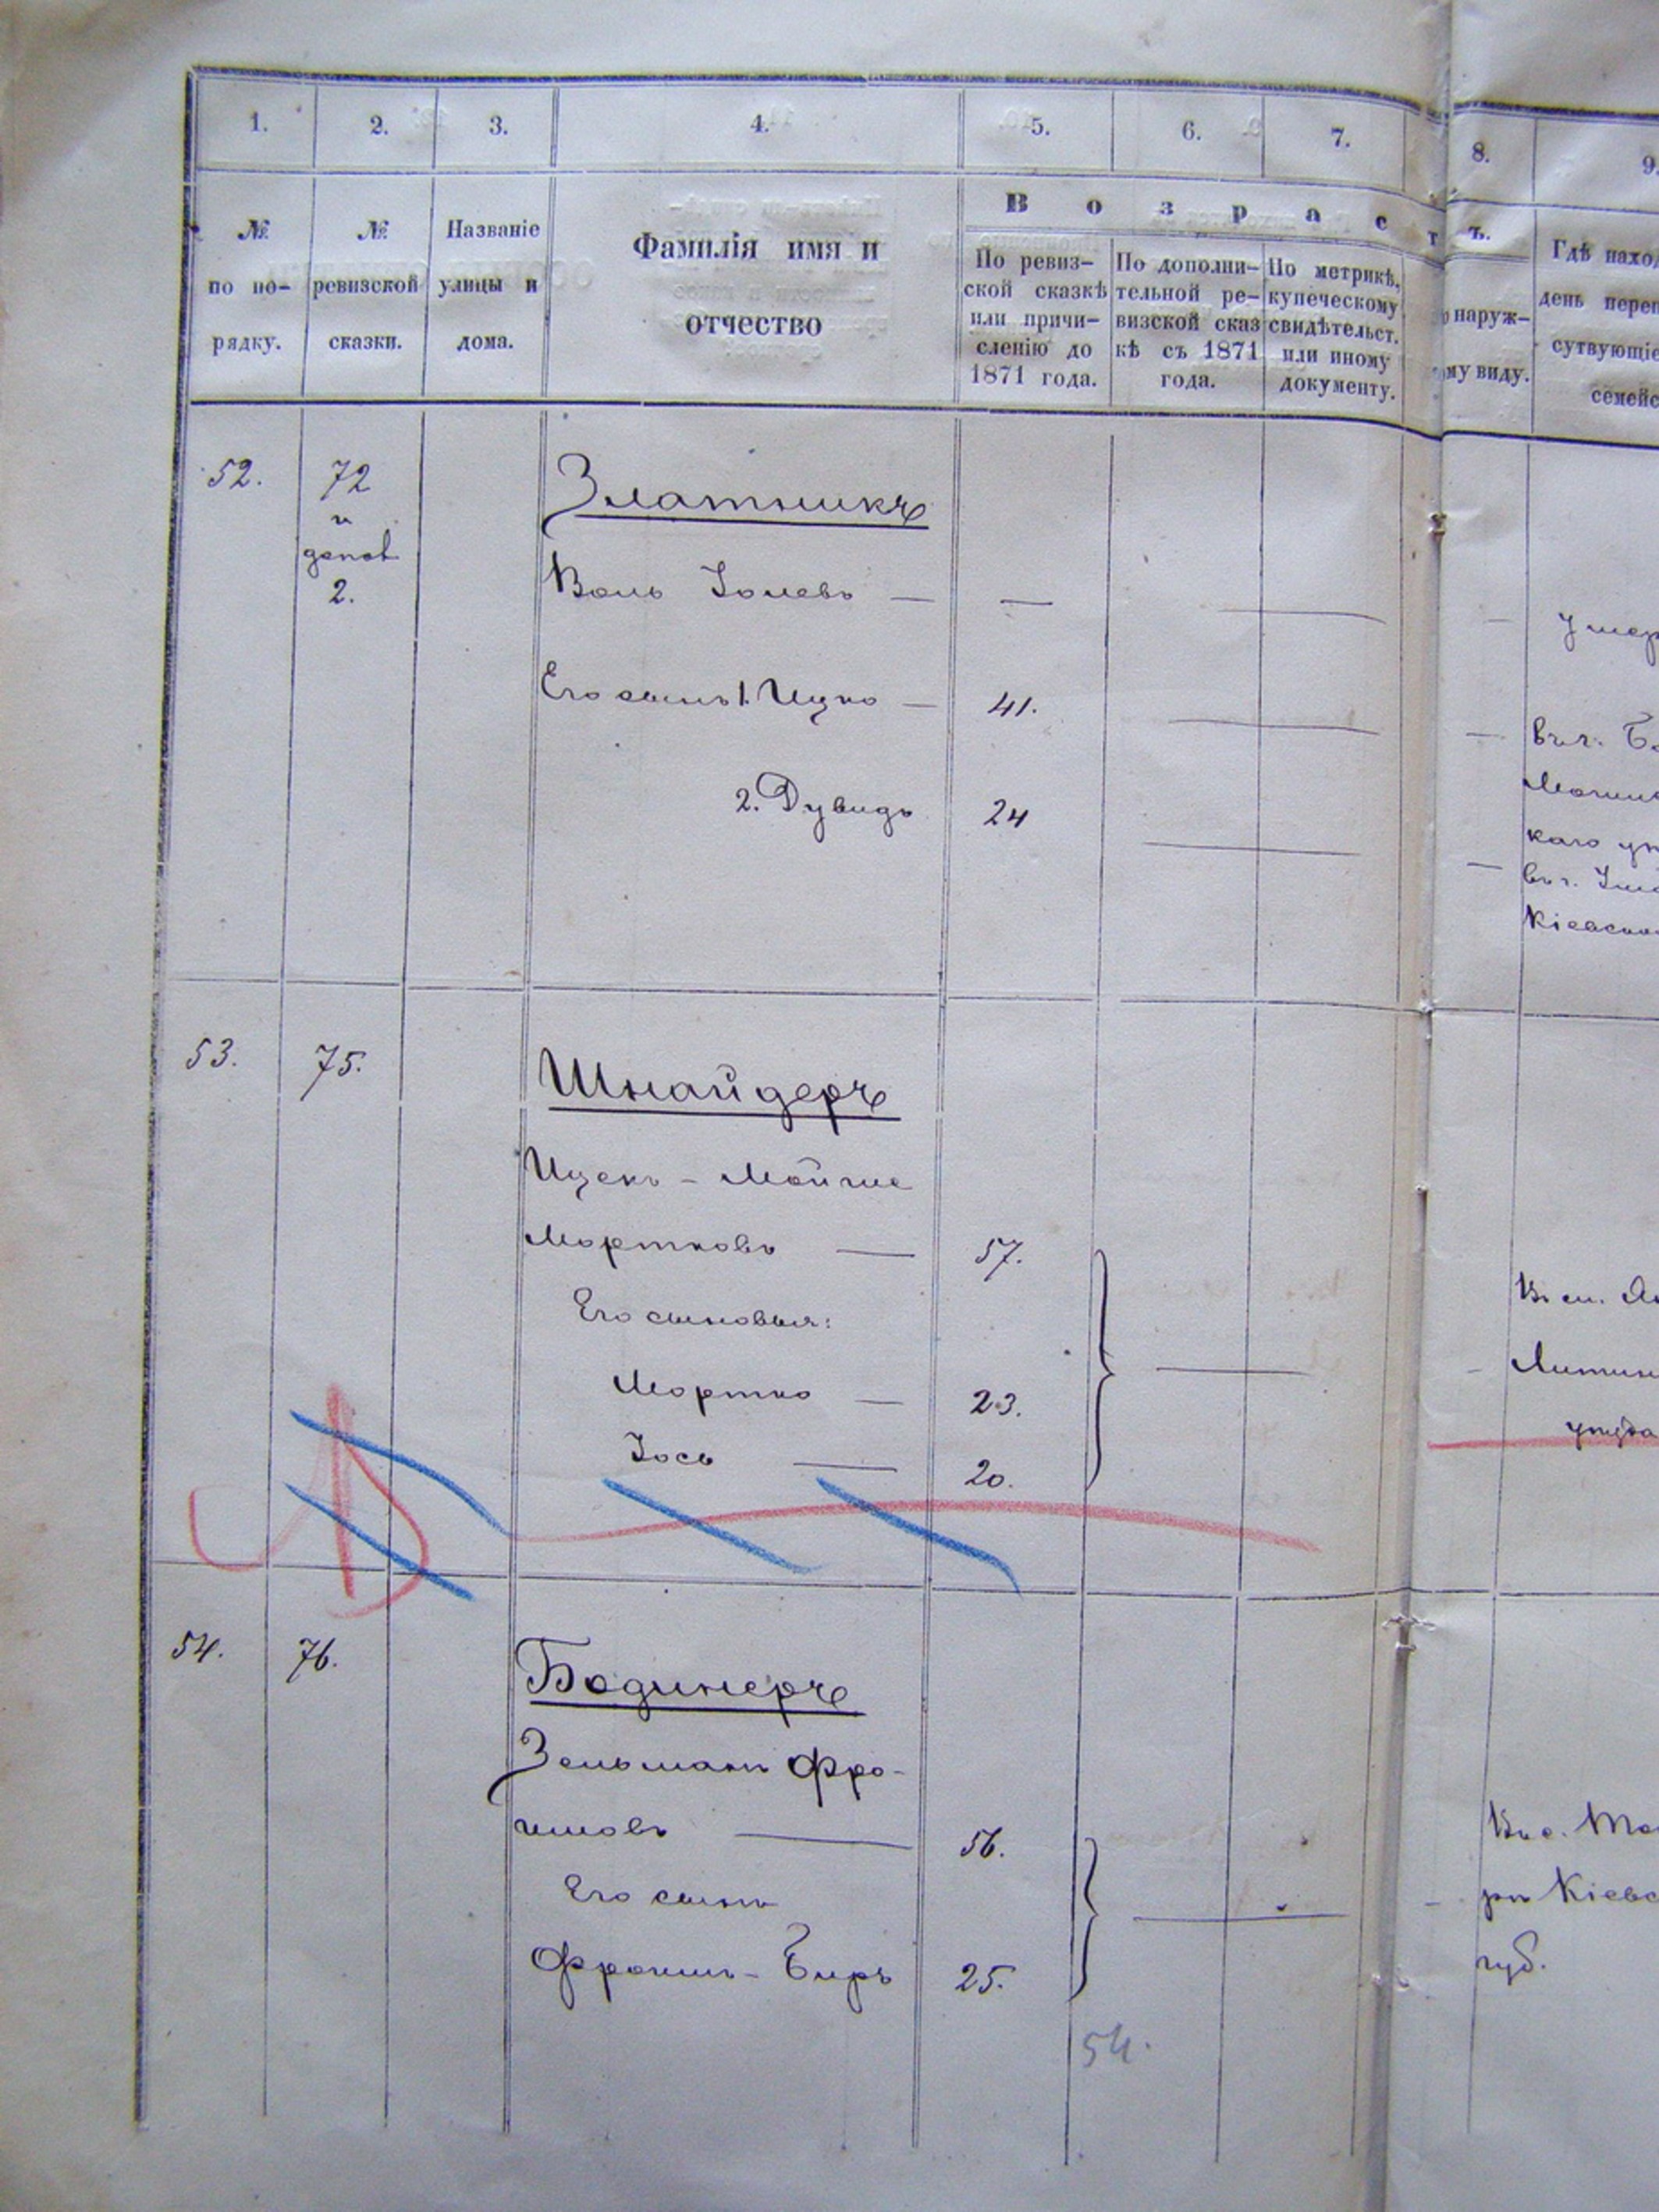 1. 2. 3. 4. 5. 6. 7. 8. 9.
№ по по-
рядку.
№
ревизской
сказки.
Названіе
улицы и
дома.
Фамилія имя и
отчество
В о з р а с т ъ.
По ревиз-
ской сказкѣ
или причи-
сленію до
1871 года.
По дополни-
тельной ре-
визской сказ
кѣ съ 1871
года.
По метрикѣ,
купеческому
свидѣтельст.
или иному
документу.
наруж-
му виду.
Гдѣ наход
день переп
сутвующіе
семейс
52. 72 Златникъ
и
2.
— —
Его сынъ 1. Ицко — 41.
2. Дувидъ 24
Кіевско
53. 75. Шнайдеръ
Ицекъ - Мойше
Мортковъ — 57.
Его сыновья:
Мортко — 23.
Іось — 20.
Литин
уѣзда
54. 76. Бодинеръ
Зельманъ Фро-
имовъ — 56.
Его сынъ
Фроимъ - Беръ 25.
Кіевс
губ.
54.